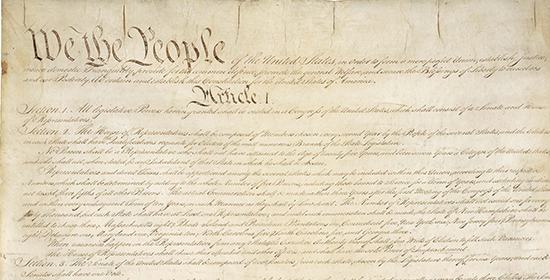 We the People of the United States, in Order to form a more perfect Union, establish Justice,
insure domestic Tranquility, provide for the common defence, promote the general Welfare, and secure the Blessings of Liberty to ourselves
and our Posterity, do ordain and establish this Constitution for the United States of America.
Article. I.
Section. 1. All legislative Powers herein granted shall be vested in a Congress of the United States, which shall consist of a Senate and House
of Representatives.
Section. 2. The House of Representatives shall be composed of Members chosen every second Year by the People of the several States, and the Electors
in each State shall have Qualifications requisite for Electors of the most numerous Branch of the State Legislature.
No Person shall be a Representative who shall not have attained to the Age of twenty five Years, and been seven Years a Citizen of the United States,
and who shall not, when elected, be an Inhabitant of that State in which he shall be chosen.
Representatives and direct Taxes shall be apportioned among the several States which may be included within this Union, according to their respective
Numbers, which shall be determined by adding to the whole Number of free Persons,
three fifths of all other Persons. The actual Enumeration shall be made within three Years after the first Meeting of the Congress of the United States,
and within every subsequent Term of ten Years, in such Manner as they shall by Law direct. The Number of Representatives shall not exceed one for every
thirty Thousand, but each State shall have at Least one Representative; and until such enumeration shall be made, the State of New Hampshire shall be
entitled to chuse three, Massachusetts eight, Rhode Island and Providence Plantations one, Connecticut five, New York six, New Jersey four, Pennsylvania
eight, Virginia ten, North Carolina five, South Carolina five, and Georgia three.
When vacancies happen in the Representation from any State, the Executive Authority thereof shall issue Writs of Election to fill such Vacancies.
The House of Representatives shall chuse their Speaker and other Officers;
Section. 3. The Senate of the United States shall be composed of two Senators from each State, chosen by the Legislature thereof, for six Years; and each
Senator shall have one Vote.